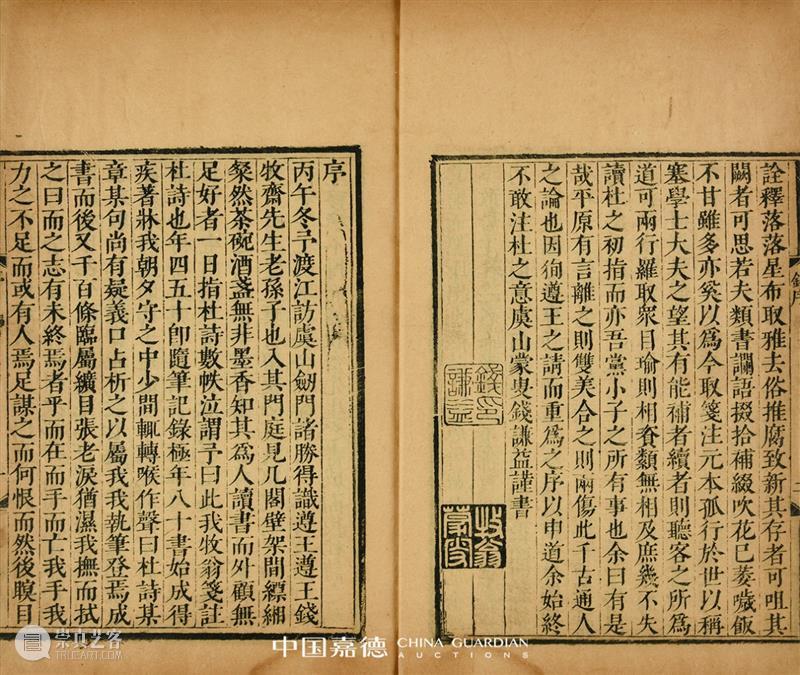 詮釋落落星布取雅去俗推腐致新其存者可咀其
闕者可思若夫類書讕語掇拾補綴吹花已萎噦飯
不甘雖多亦奚以為今取箋注元本孤行於世以稱
塞學士大夫之望其有能補者續者則聽客之所為
道可兩行羅取眾目瑜則相夌纇無相及庶幾不失
讀杜之初指而亦吾黨小子之所有事也余曰有是
哉平原有言離之則雙美合之則兩傷此千古通人
之論也因徇遵王之請而重為之序以申道余始終
不敢注杜之意虞山蒙叟錢謙益謹書
錢印
謙益
牧翁
蒙叟
序
丙午冬予渡江訪虞山劒門諸勝得識遵王遵王錢
牧齋先生老孫子也入其門庭見几閣壁架間縹緗
粲然茶碗酒盞無非墨香知其為人讀書而外顧無
足好者一日指杜詩數帙泣謂予曰此我牧翁箋註
杜詩也年四五十即隨筆記錄極年八十書始成得
疾著牀我朝夕守之中少間輒轉喉作聲曰杜詩某
章某句尚有疑義口占析之以屬我我執筆登焉成
書而後又千百條臨屬纊目張老淚猶濕我撫而拭
之曰而之志有未終焉者乎而在而手而亡我手我
力之不足而或有人焉足謀之而何恨而然後瞑目
中国嘉德 CHINA GUARDIAN
AUCTIONS
崇真艺客
TRUEART.COM